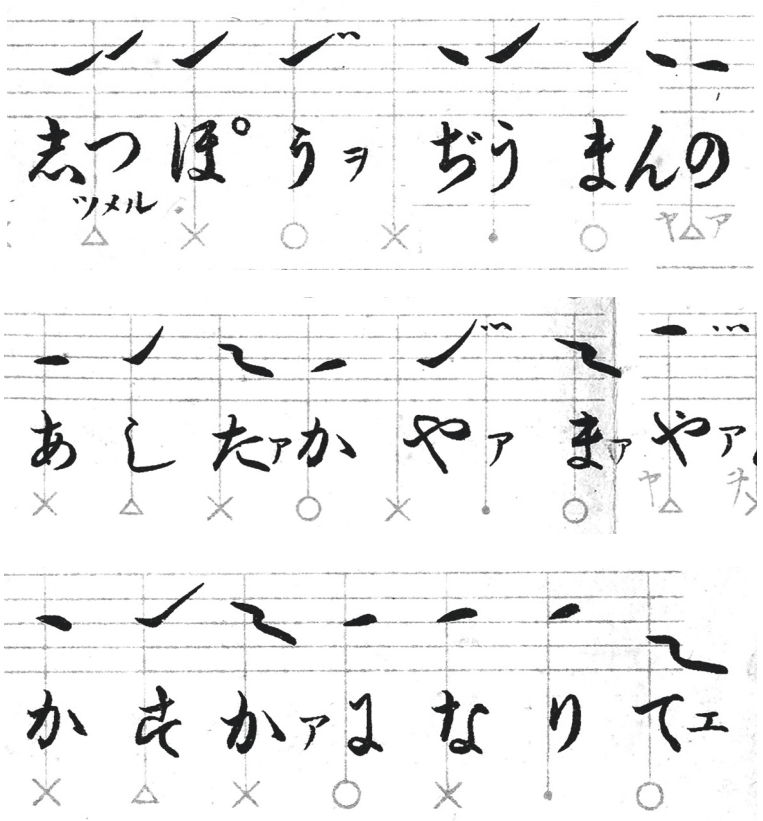 志つぽ゜うヲぢうまんの
ツメル
△×○×・○ヤ△ア
あしたァかやァまァやァ
×△×○×・○ヤ△ヲ×
かすかァになりてエ
×△×○×・○